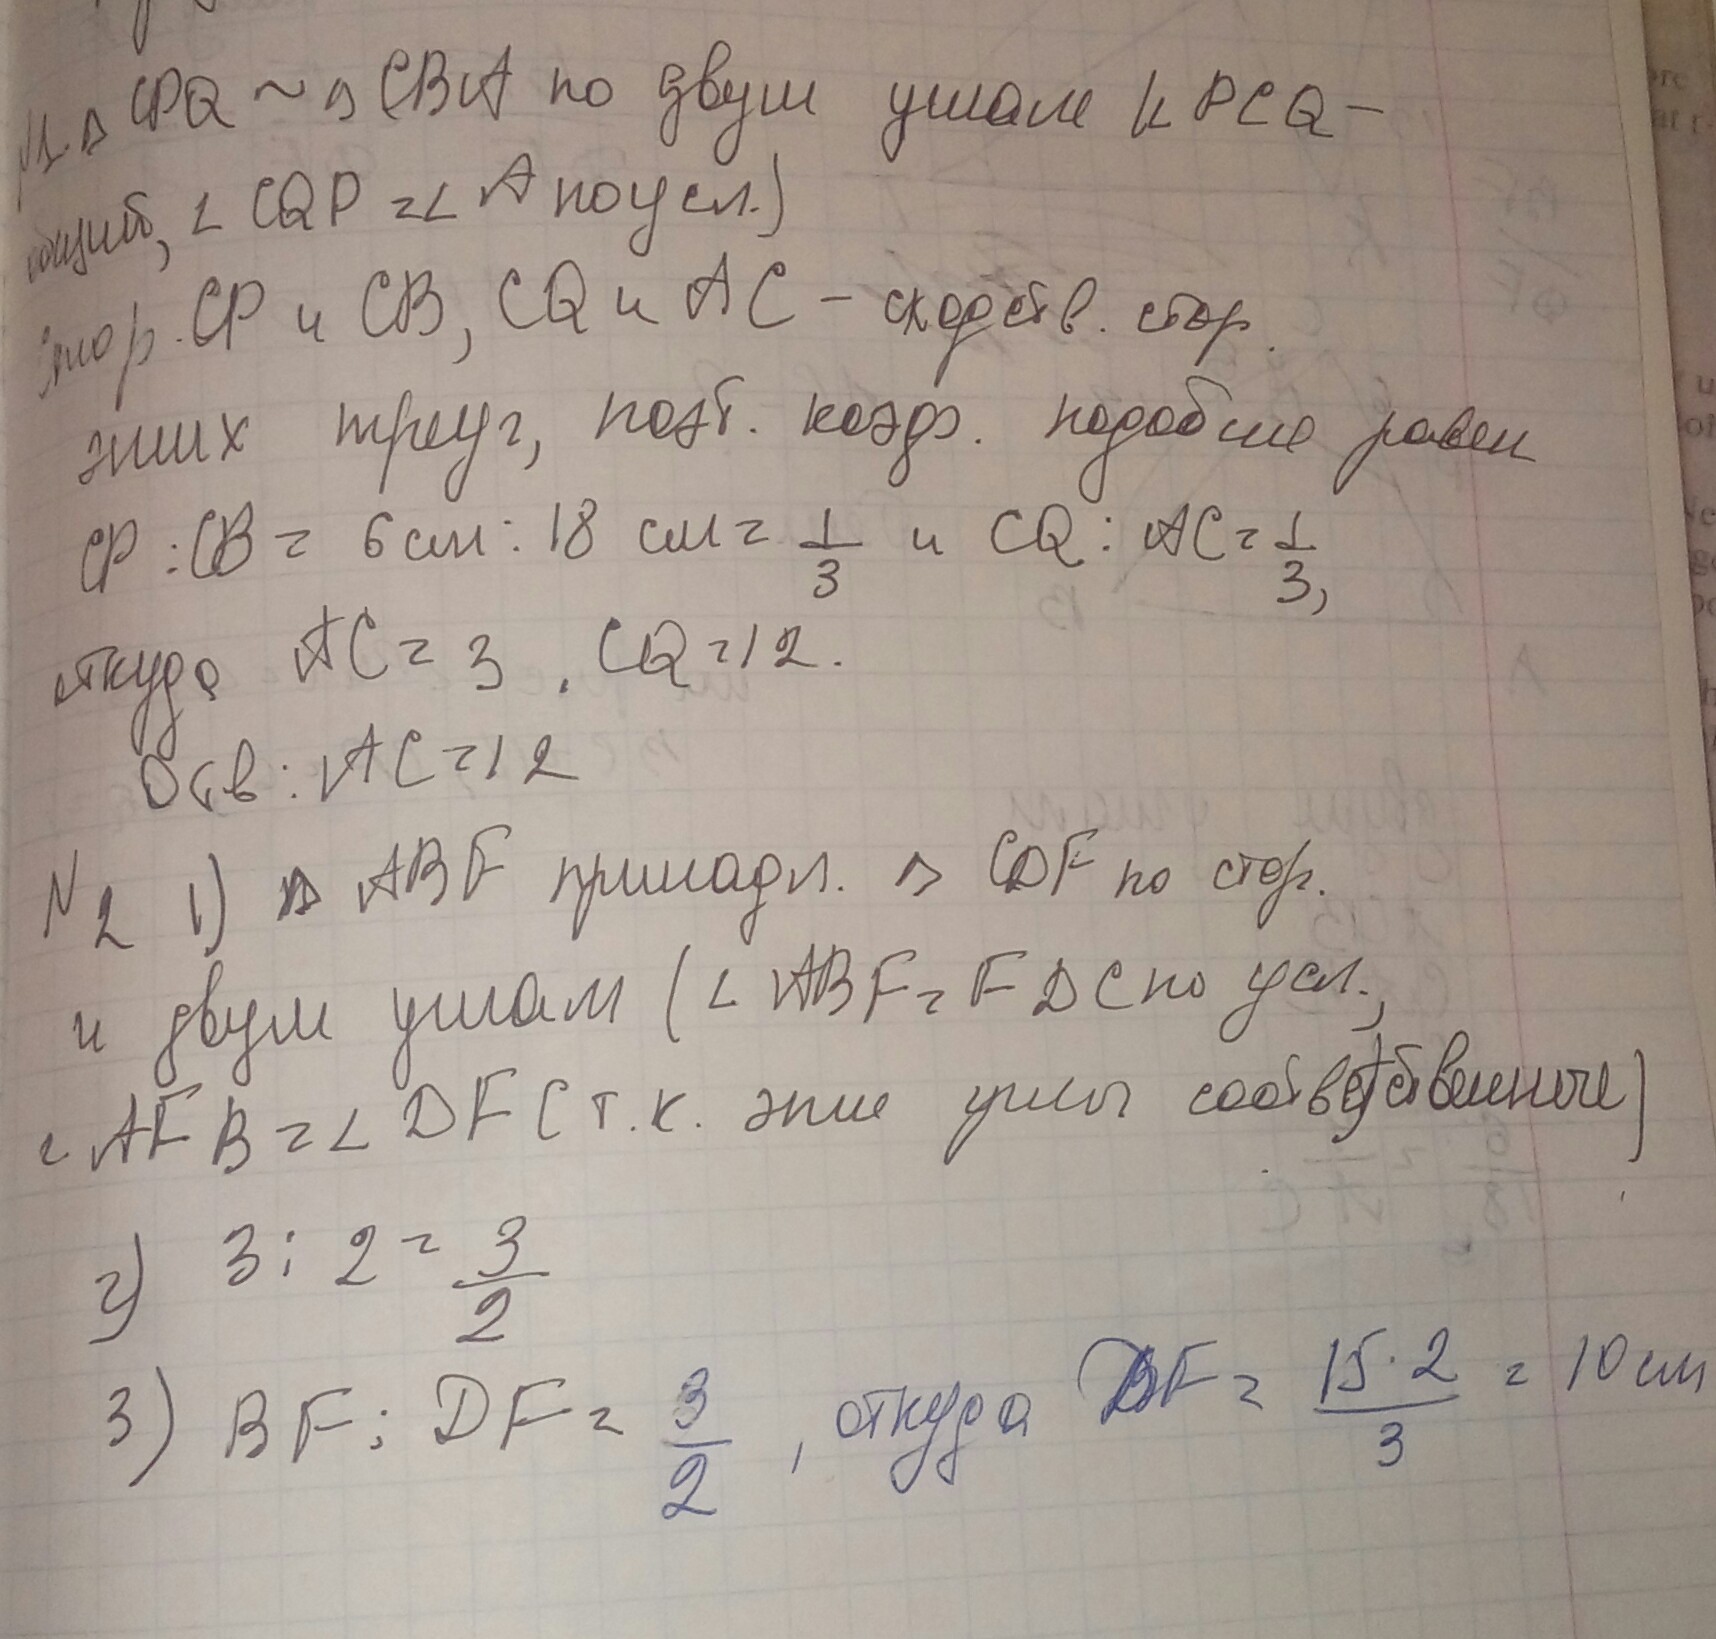 №1. △ CPQ ~ △ CBA по двум углам (∠ PCQ –
общий, ∠ CQP = ∠ A по усл.)
Стор. CP и CB, CQ и AC – сходств. стор.
этих треуг, поэт. коэф. подобие равен
CP : CB = 6 см : 18 см = 1/3 и CQ : AC = 1/3,
откуда AC = 3 . CQ = 12.
Отв: AC = 12
№ 2 1) △ ABF принадл. △ CDF по стор.
и двум углам (∠ ABF = FDC по усл.,
∠ AFB = ∠ DFC т.к. эти углы соответственные)
2) 3 : 2 = 3/2
3) BF : DF = 3/2 , откуда DF = 15·2/3 = 10 см